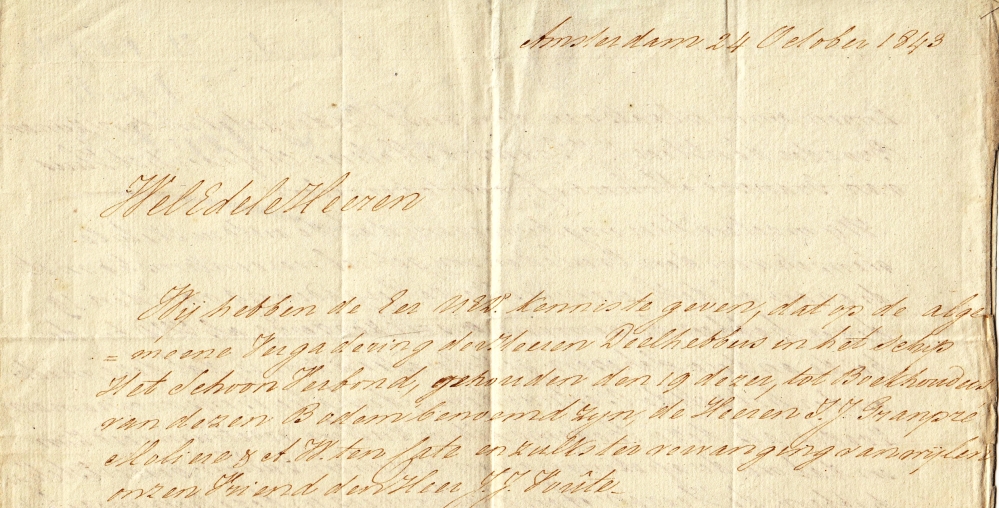 Amsterdam 24 October 1843
WelEdele Heeren
Wij hebben de Eer UEd. kennis te geven, dat op de alge
= meene Vergadering der Heeren Deelhebbers in het schip
Het Schoon Verbond, gehouden den 19 dezer, tot Boekhouders
van dezen Bodem benoemd zyn, de Heeren J. J. Granpré
Moliere & A. W. ten Cate en zulks ter vervanging van wijlen
onzen Vriend den Heer J. J. Voûte.